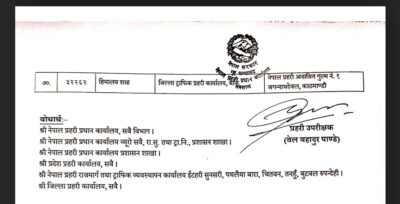 नेपाल सरकार
गृह मन्त्रालय
नेपाल प्रहरी प्रधान कार्यालय
नक्साल
७०. ३२२६२ हिमालय शाह जिल्ला ट्राफिक प्रहरी कार्यालय, नेपाल प्रहरी अनाश्रित गुल्म नं. १ जगन्नाथदेवल, काठमाण्डौ
बोधार्थः-
श्री नेपाल प्रहरी प्रधान कार्यालय, सबै विभाग।
श्री नेपाल प्रहरी प्रधान कार्यालय ब्यूरो सबै, रा.सु. तथा ट्रा.नि., प्रशासन शाखा।
श्री नेपाल प्रहरी प्रधान कार्यालय प्रशासन शाखा।
श्री प्रदेश प्रहरी कार्यालय, सबै।
श्री नेपाल प्रहरी राजमार्ग तथा ट्राफिक व्यवस्थापन कार्यालय ईटहरी सुनसरी, पथलैया बारा, चितवन, तनहुँ, बुटवल रुपन्देही।
श्री जिल्ला प्रहरी कार्यालय, सबै।
प्रहरी उपरीक्षक
(बेल बहादुर पाण्डे)